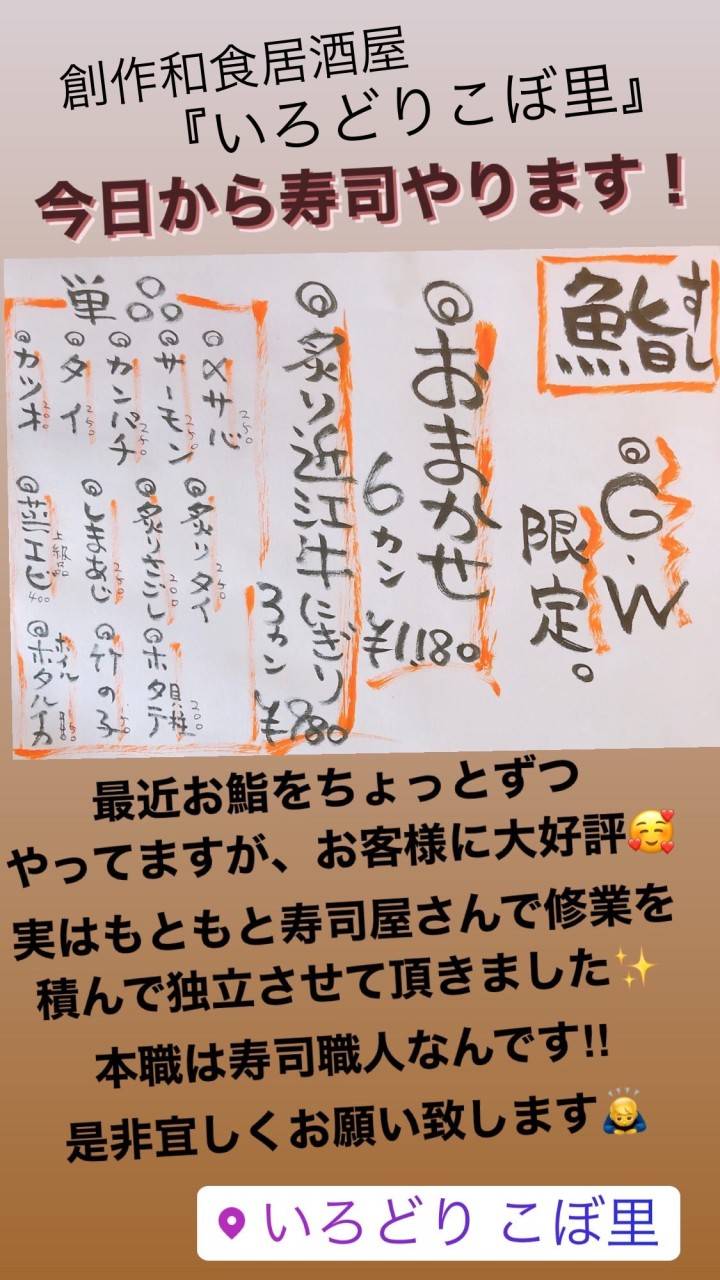 創作和食居酒屋
『いろどりこぼ里』
今日から寿司やります！
鮨
すし
◎G.W
限定。
◎おまかせ
6カン
¥1,180
◎炙り近江牛にぎり
3カン
¥980
単品
◎〆サバ 250
◎サーモン 250
◎カンパチ 250
◎タイ 250
◎カツオ 200
◎炙りタイ 250
◎炙りさごし 200
◎しまあじ 250
上級品
400
◎ホタテ 貝柱 200
◎竹の子 150
◎ボイル
ホタルイカ
最近お鮨をちょっとずつ
やってますが、お客様に大好評🥰
実はもともと寿司屋さんで修業を
積んで独立させて頂きました✨
本職は寿司職人なんです‼
是非宜しくお願い致します🙇
いろどり こぼ里